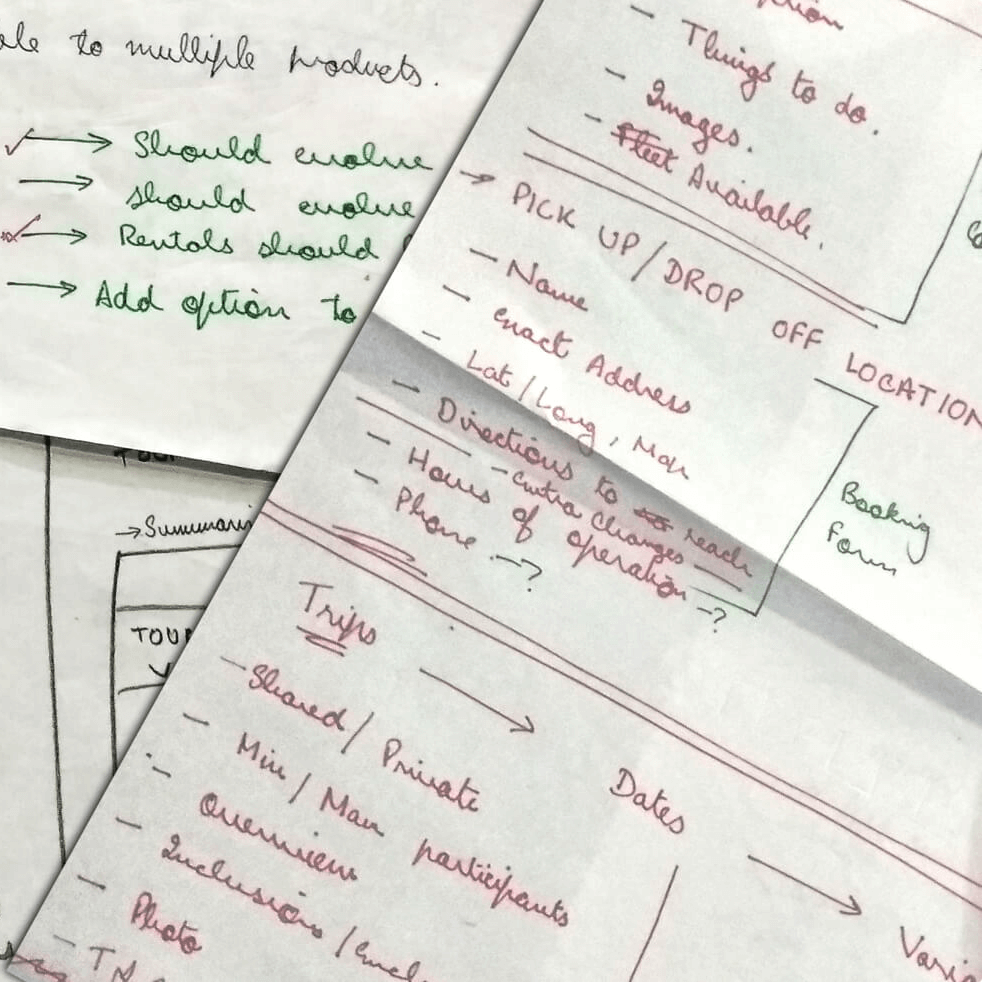 to multiple products.
→ Should evolve
→ should evolve
→ Rentals should
→ Add option to
→ Summari
TOUR
- Things to do.
- Images.
- Fleet Available.
→ PICK UP / DROP OFF LOCATION
- Name
- exact Address
- Lat / Long, Map
- Directions to reach
- extra charges
- Hours of operation -?
- Phone -?
Booking
form
Trips → Dates → Varia
- Shared / Private
- Min / Max participants
- Overview
- Inclusions / Excl
- Photo